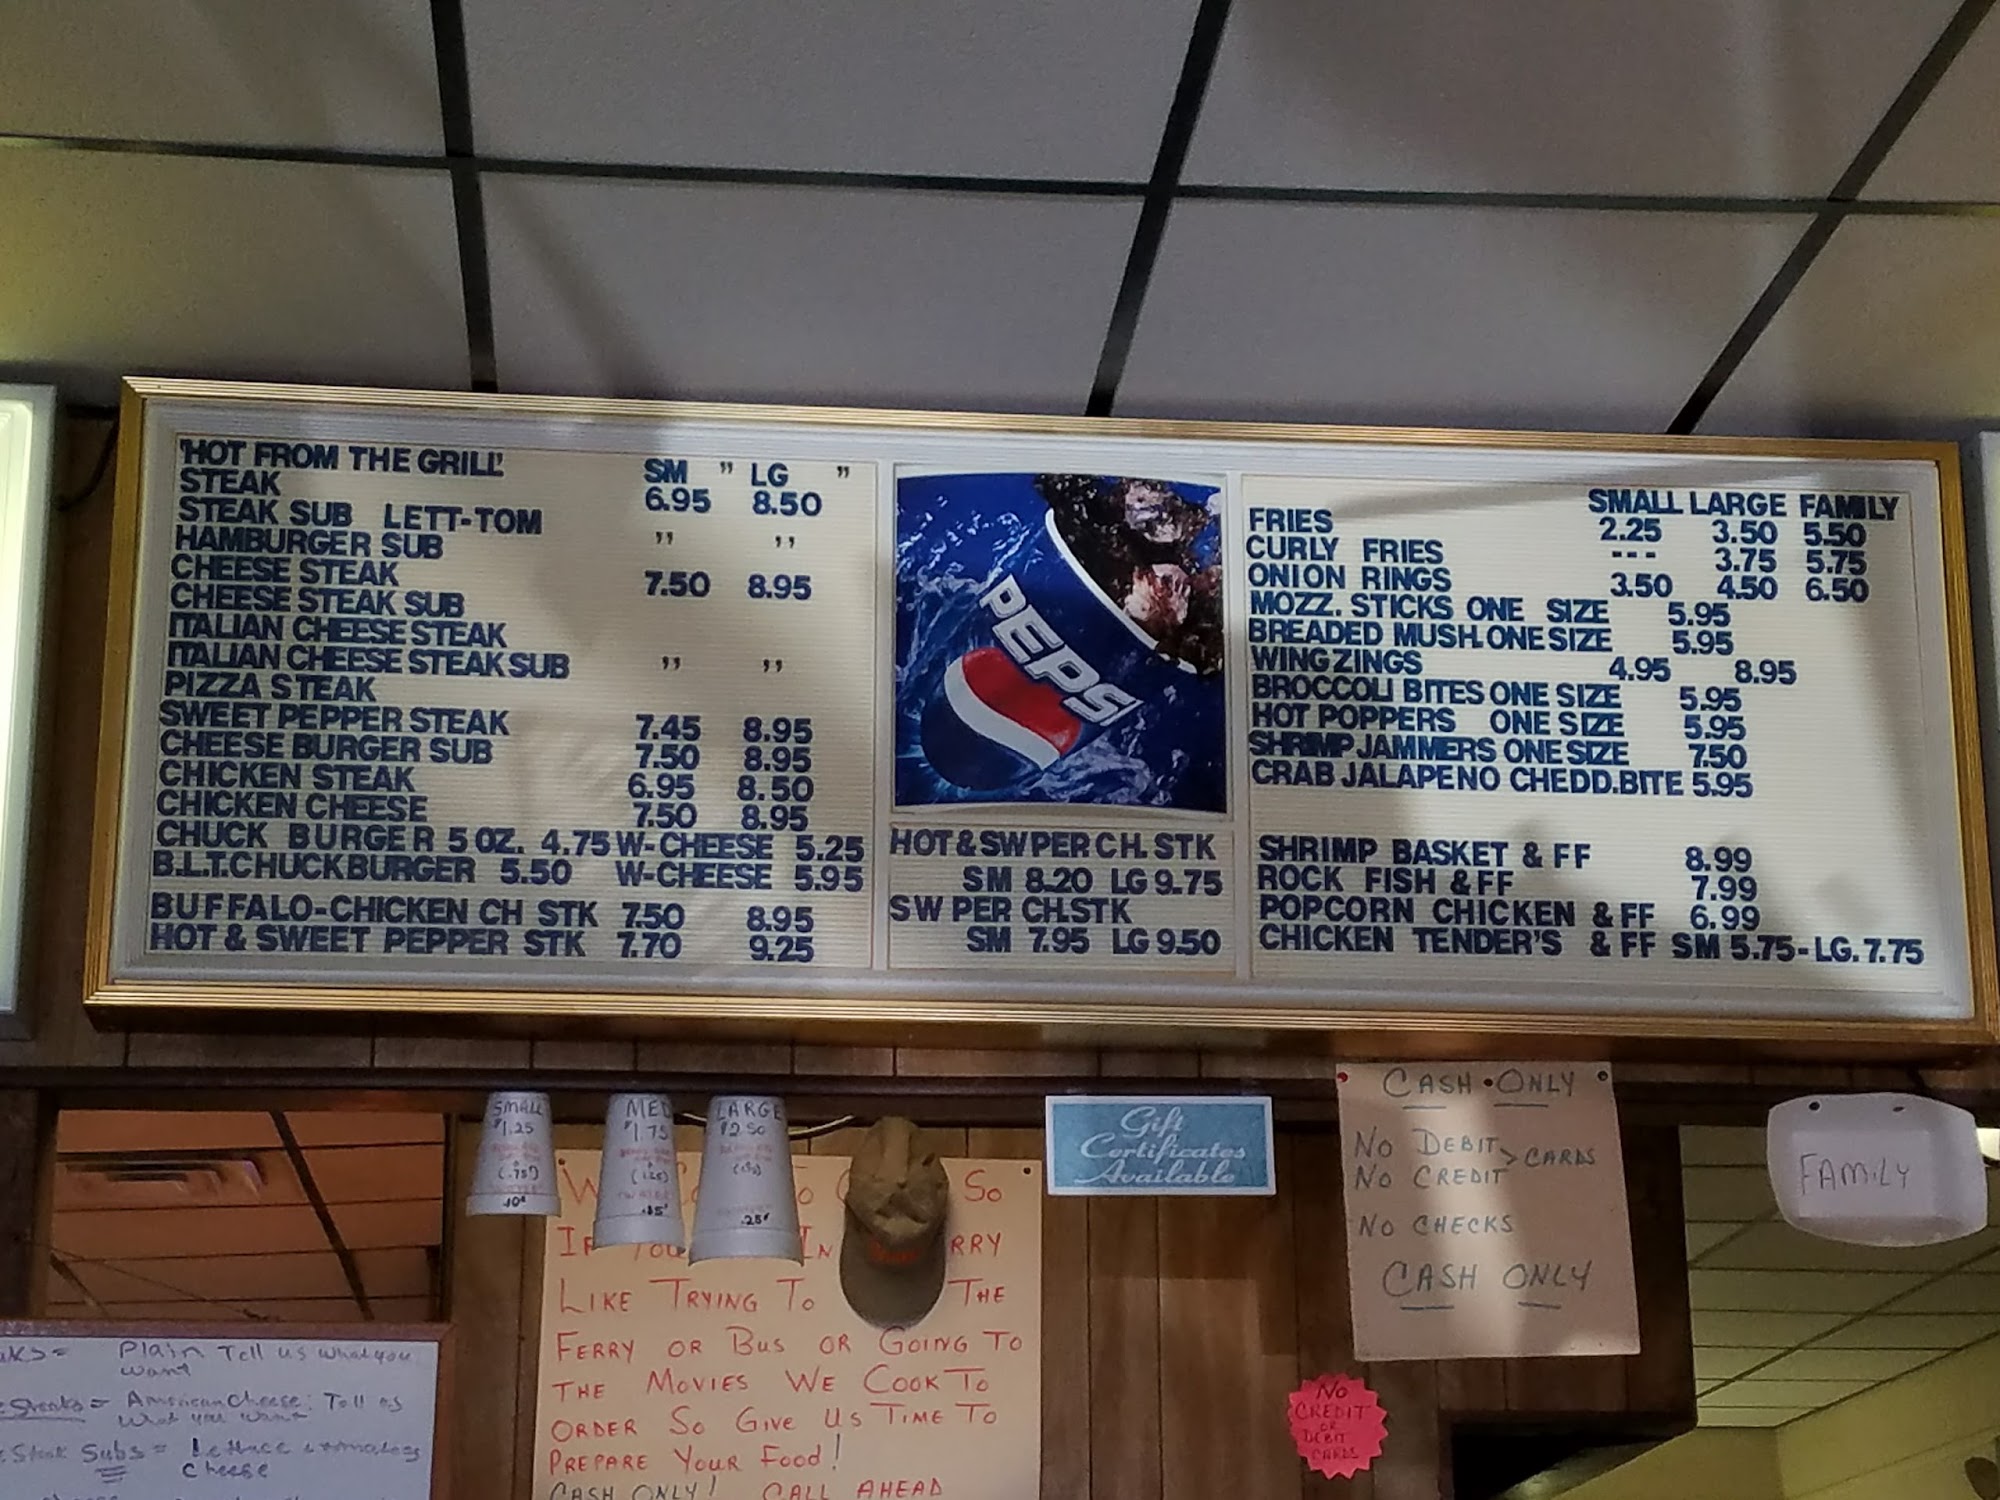 'HOT FROM THE GRILL' SM " LG "
STEAK 6.95 8.50
STEAK SUB LETT-TOM
HAMBURGER SUB " "
CHEESE STEAK 7.50 8.95
CHEESE STEAK SUB
ITALIAN CHEESE STEAK
ITALIAN CHEESE STEAK SUB " "
PIZZA STEAK
SWEET PEPPER STEAK 7.45 8.95
CHEESE BURGER SUB 7.50 8.95
CHICKEN STEAK 6.95 8.50
CHICKEN CHEESE 7.50 8.95
CHUCK BURGER 5 OZ. 4.75 W-CHEESE 5.25
B.L.T. CHUCKBURGER 5.50 W-CHEESE 5.95
BUFFALO-CHICKEN CH STK 7.50 8.95
HOT & SWEET PEPPER STK 7.70 9.25
PEPSI
HOT & SW PER CH. STK
SM 8.20 LG 9.75
SW PER CH.STK
SM 7.95 LG 9.50
SMALL LARGE FAMILY
FRIES 2.25 3.50 5.50
CURLY FRIES --- 3.75 5.75
ONION RINGS 3.50 4.50 6.50
MOZZ. STICKS ONE SIZE 5.95
BREADED MUSH. ONE SIZE 5.95
WING ZINGS 4.95 8.95
BROCCOLI BITES ONE SIZE 5.95
HOT POPPERS ONE SIZE 5.95
SHRIMP JAMMERS ONE SIZE 7.50
CRAB JALAPENO CHEDD.BITE 5.95
SHRIMP BASKET & FF 8.99
ROCK FISH & FF 7.99
POPCORN CHICKEN & FF 6.99
CHICKEN TENDER'S & FF SM 5.75 - LG. 7.75
SMALL
$1.25
(.75)
.10¢
MED
$1.75
.15¢
LARGE
$2.50
.25¢
Gift
Certificates
Available
CASH • ONLY
NO DEBIT > CARDS
NO CREDIT
NO CHECKS
CASH ONLY
FAMILY
So
IF You In RRY
LIKE TRYING TO THE
FERRY OR BUS OR GOING TO
THE MOVIES WE COOK TO
ORDER SO GIVE US TIME TO
PREPARE YOUR FOOD!
CASH ONLY! CALL AHEAD
NO
CREDIT
OR
DEBIT
CARDS
= Plain Tell us what you
want
Steaks = American Cheese: Tell us
what you want
Steak Subs = Lettuce & tomatoes
Cheese